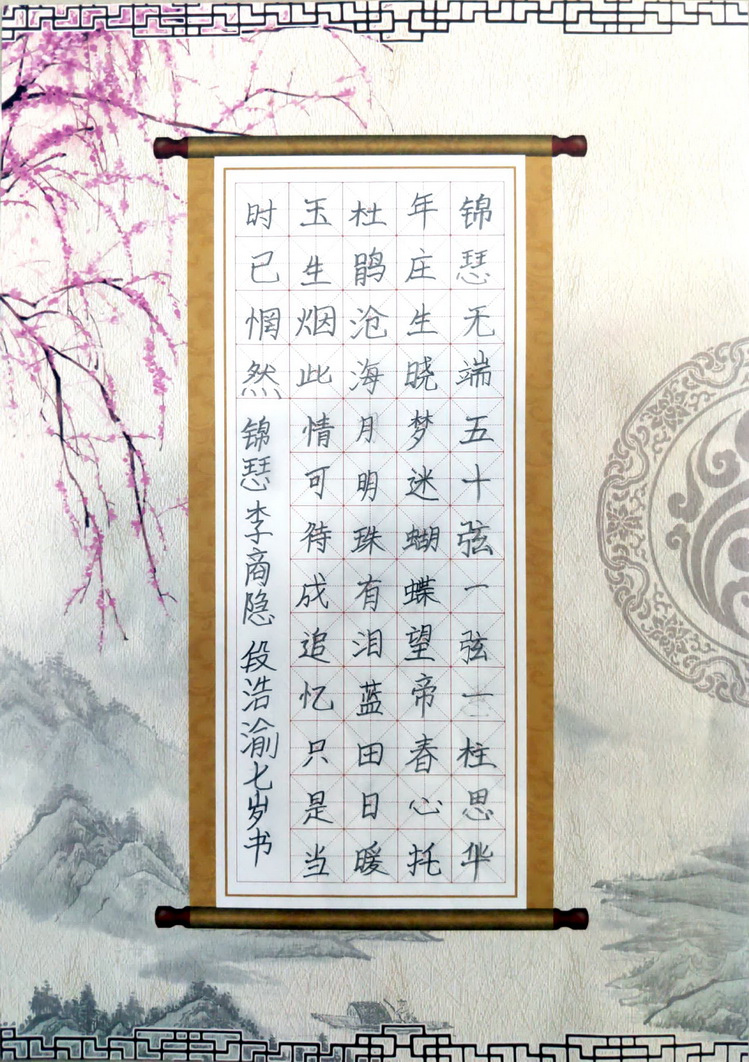 锦瑟无端五十弦一弦一柱思华
年庄生晓梦迷蝴蝶望帝春心托
杜鹃沧海月明珠有泪蓝田日暖
玉生烟此情可待成追忆只是当
时已惘然 锦瑟 李商隐 段浩渝七岁书